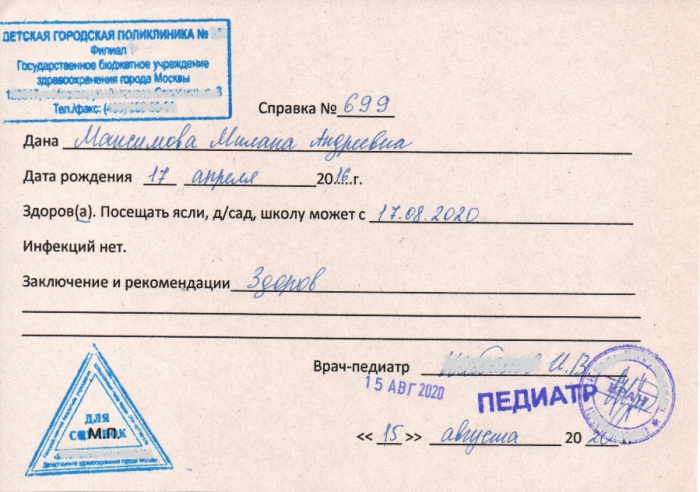 ДЕТСКАЯ ГОРОДСКАЯ ПОЛИКЛИНИКА №
Филиал
Государственное бюджетное учреждение
здравоохранения города Москвы
Тел./факс:
Справка № 699
Дана Максимова Милана Андреевна
Дата рождения 17 апреля 2016 г.
Здоров(а). Посещать ясли, д/сад, школу может с 17.08.2020
Инфекций нет.
Заключение и рекомендации Здоров
Врач-педиатр И.В.
15 АВГ 2020
ПЕДИАТР
ВРАЧ
ДЛЯ
М.П.
Департамент здравоохранения города Москвы
<< 15 >> августа 2020